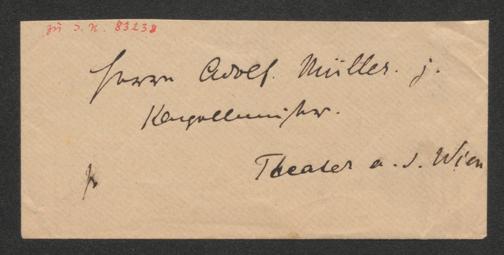 zu J. N. 83238
Herrn Adolf. Müller. j.
Kapellmeister.
Theater a. d. Wien